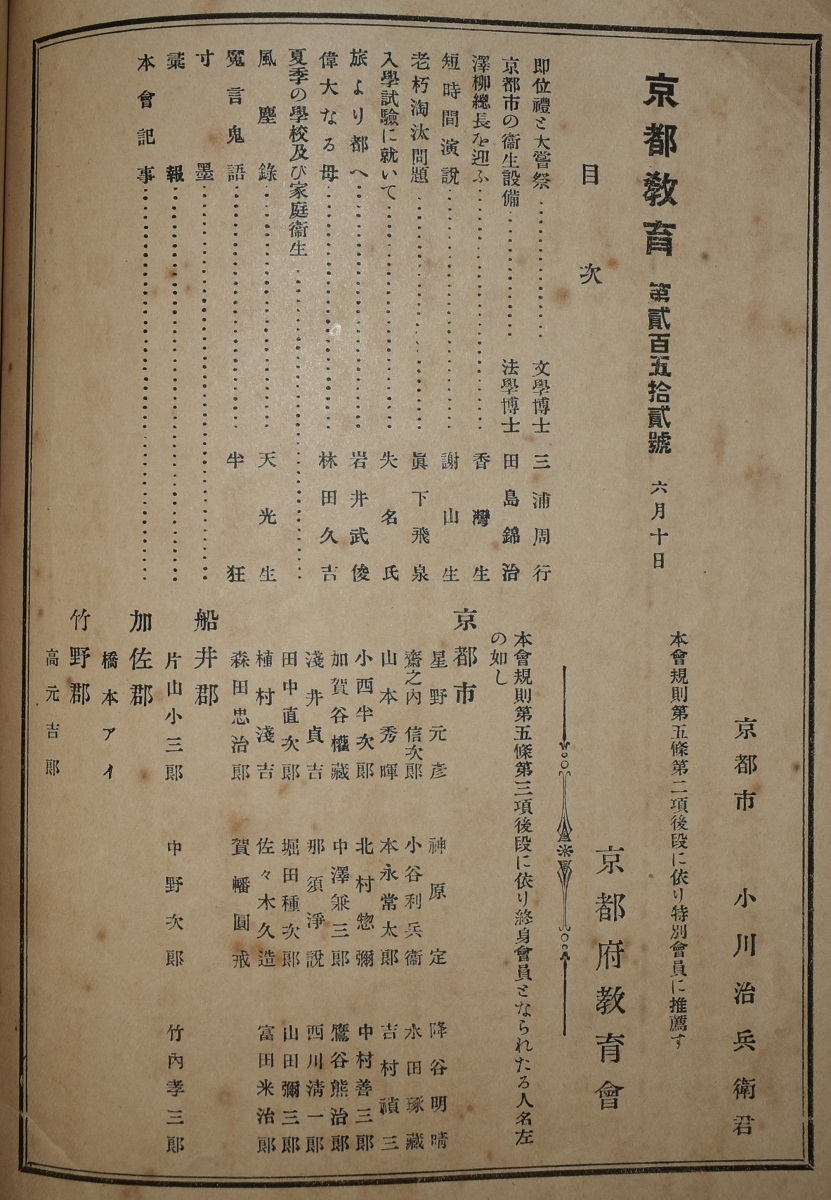 京都教育 第貳百五拾貳號 六月十日
目次
即位禮と大嘗祭‥‥‥‥‥‥文學博士 三浦周行
京都市の衞生設備‥‥‥‥‥‥法學博士 田島錦治
澤柳總長を迎ふ‥‥‥‥‥‥香灣生
短時間演說‥‥‥‥‥‥謝山生
老朽淘汰問題‥‥‥‥‥‥眞下飛泉
入學試驗に就いて‥‥‥‥‥‥失名氏
旅より都へ‥‥‥‥‥‥岩井武俊
偉大なる母‥‥‥‥‥‥林田久吉
夏季の學校及び家庭衞生‥‥‥‥‥‥
風塵錄‥‥‥‥‥‥天光生
寃言鬼語‥‥‥‥‥‥半狂
寸墨‥‥‥‥‥‥
彙報‥‥‥‥‥‥
本會記事‥‥‥‥‥‥
京都市 小川治兵衛君
本會規則第五條第二項後段に依り特別會員に推薦す
京都府教育會
本會規則第五條第三項後段に依り終身會員となられたる人名左
の如し
京都市
星野元彦 神原定 降谷明晴
齋之內信次郎 小谷利兵衞 水田琢藏
山本秀暉 本永常太郎 吉村禎三
小西半次郎 北村惣彌 中村善三郎
加賀谷權藏 中澤釆三郎 鷹谷熊治郎
淺井貞吉 那須淨說 西川淸一郎
田中直次郎 堀田種次郎 山田彌三郎
植村淺吉 佐々木久造 富田米治郎
森田忠治郎 賀幡圓戒
船井郡
片山小三郎 中野次郎 竹內孝三郎
加佐郡
橋本アイ
竹野郡
高元吉郎